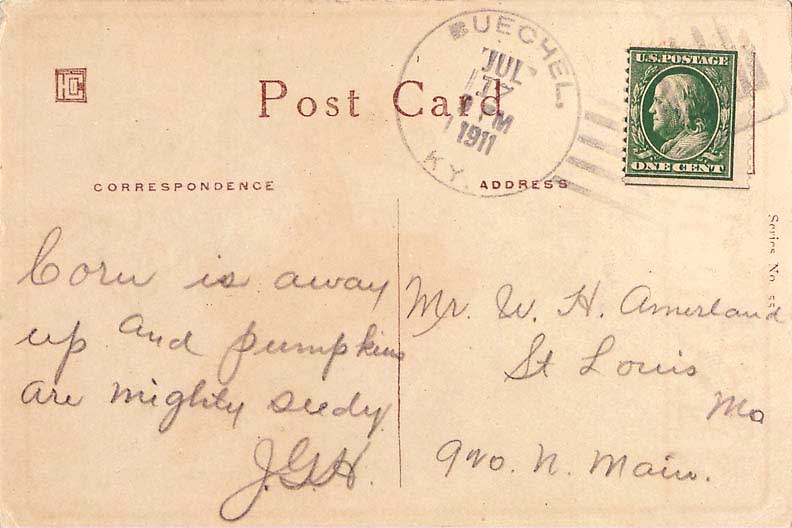 Post Card
BUECHEL,
JUL
17
PM
1911
KY.
U.S. POSTAGE
ONE CENT
CORRESPONDENCE
ADDRESS
Series No. 55
Corn is away
up and pumpkins
are mighty seedy
J.G.H.
Mr. W. H. Amerland
St Louis
Mo
N. Main.